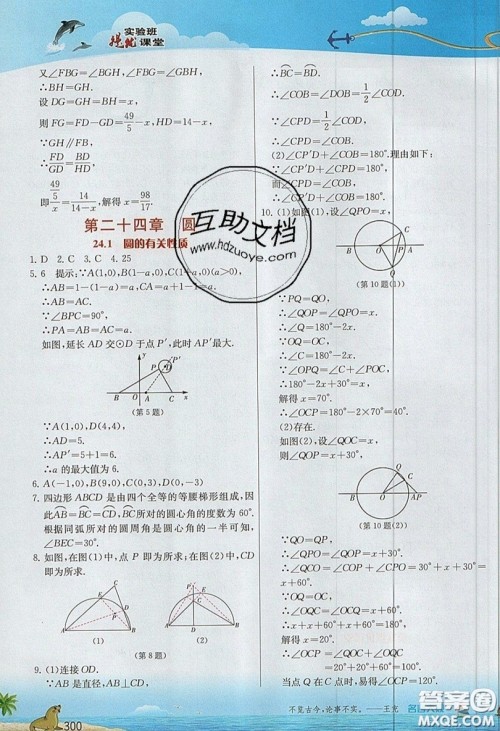 实验班
提优课堂
又∠FBG=∠BGH,∠FBG=∠GBH,
∴BH=GH.
设DG=GH=BH=x,
则FG=FD-GD=49/5-x,HD=14-x.
∵GH∥FB,
∴FD/GD=BD/HD.
即(49/5)/x=14/(14-x),解得x=98/17.
第二十四章 圆
24.1 圆的有关性质
1. D 2. C 3. C 4. 25
5. 6 提示:∵A(1,0),B(1-a,0),C(1+a,0)(a>0),
∴AB=1-(1-a)=a,CA=a+1-1=a.
∴AB=AC.
∵∠BPC=90°,
∴PA=AB=AC=a.
如图,延长AD交⊙D于点P′,此时AP′最大.
y
P
P′
D
B
O
A
C
x
(第5题)
∵A(1,0),D(4,4),
∴AD=5.
∴AP′=5+1=6.
∴a的最大值为6.
6. A(-1,0),B(9,0),C(0,3),D(0,-3)
7. 四边形ABCD是由四个全等的等腰梯形组成,因
此AB=BC=CD,BC所对的圆心角的度数为60°.
根据同弧所对的圆周角是圆心角的一半可知,
∠BEC=30°.
8. 如图,在图(1)中,点P即为所求;在图(2)中,CD
即为所求.
(1)
(2)
(第8题)
9. (1)连接OD.
∵AB是直径,AB⊥CD,
∴BC=BD.
∴∠COB=∠DOB=1/2∠COD.
∵∠CPD=1/2∠COD,
∴∠CPD=∠COB.
(2)∠CP′D+∠COB=180°.理由如下:
∵∠CPD+∠CP′D=180°,
而∠CPD=∠COB,
∴∠CP′D+∠COB=180°.
10. (1)存在.如图(1),设∠QPO=x,
(第10题(1))
∵PQ=QO,
∴∠QOP=∠QPO=x.
∴∠Q=180°-2x.
∵∠OPQ=∠C+∠POC,
∴∠C=x-30°.
∵OQ=OC,
∴∠Q=∠C.
∴180°-2x=x-30°.
解得x=70°.
∴∠OCP=180°-2×70°=40°.
(2)存在.
如图(2),设∠QOC=x,
(第10题(2))
∵QP=QO,
∴∠QPO=∠QOP=x+30°.
∴∠QCO=∠COP+∠CPO=x+60°.
∵OQ=OC,
∴∠OQC=∠OCQ=x+60°.
∴x+x+60°+x+60°=180°.
解得x=20°.
∴∠OCP=180°-∠OCQ=100°.
不览古今,论事不实。——王充
300
互助文档
www.hdzuoye.com
答案圈
MXQE.COM